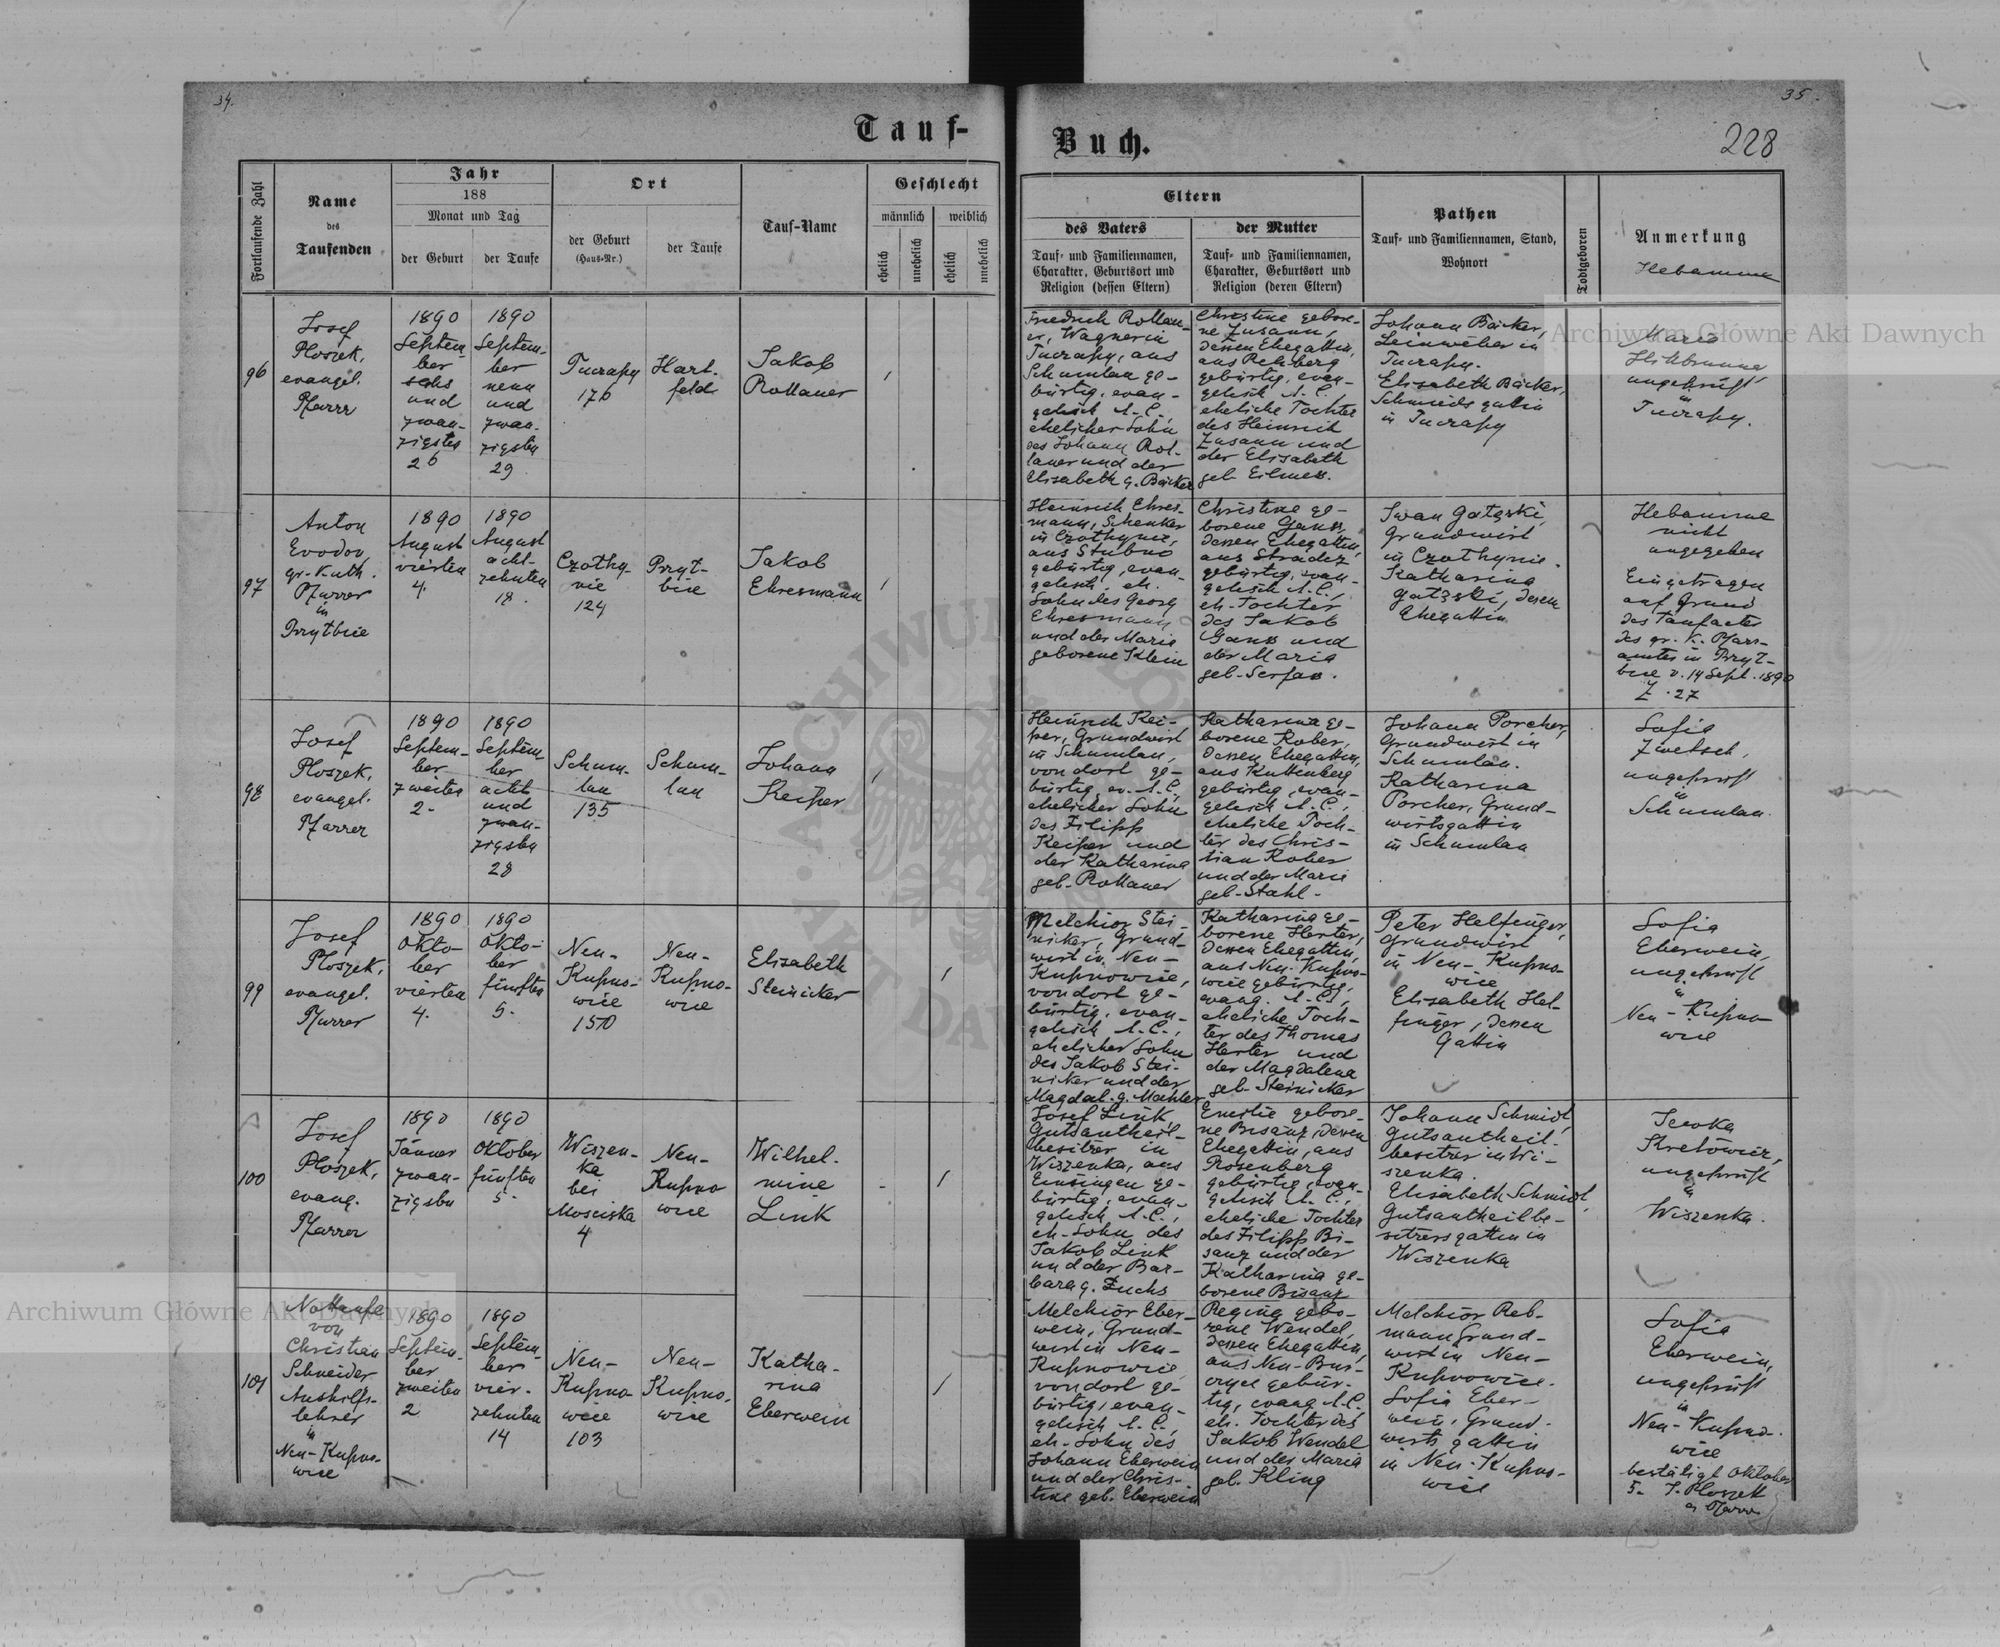 34.
35.
228
Tauf-
Buch.
Fortlaufende Zahl
Name
des
Taufenden
Jahr
188
Monat und Tag
der Geburt
der Taufe
Ort
der Geburt
(Haus-Nr.)
der Taufe
Tauf-Name
Geschlecht
männlich
weiblich
ehelich
unehelich
ehelich
unehelich
Eltern
des Vaters
Tauf- und Familiennamen,
Charakter, Geburtsort und
Religion (dessen Eltern)
der Mutter
Tauf- und Familiennamen,
Charakter, Geburtsort und
Religion (deren Eltern)
Pathen
Tauf- und Familiennamen, Stand,
Wohnort
Todtgeboren
Anmerkung
Hebamme
96
Josef
Ploszek,
evangel.
Pfarrer
1890
Septem-
ber
sechs
und
zwan-
zigsten
26
1890
Septem-
ber
neun
und
zwan-
zigsten
29
Tucrapy
176
Hart-
feld
Jakob
Rollauer
Friedrich Rollau-
er, Wagner in
Tucrapy, aus
Schumlau ge-
bürtig, evan-
gelisch A. C.,
ehelicher Sohn
des Johann Rol-
lauer und der
Elisabeth g. Bäcker
Christine gebore-
ne Zusann,
dessen Ehegattin,
aus Rehberg
gebürtig, evan-
gelisch A. C.
eheliche Tochter
des Heinrich
Zusann und
der Elisabeth
geb. Eilmess.
Johann Bäcker,
Leinweber in
Tucrapy.
Elisabeth Bäcker,
Schmieds gattin
in Tucrapy
Maria
ungeprüft
in
Tucrapy.
97
Anton
Evodov,
gr.-kath.
Pfarrer
in
Przytbice
1890
August
vierten
4.
1890
August
acht-
zehnten
18.
Czothy-
nie
124
Przyt-
bice
Jakob
Ehresmann
Heinrich Ehres-
mann, Schenker
in Czothynie,
aus Stubno
gebürtig, evan-
gelisch, eh.
Sohn des Georg
Ehresmann
und der Maria
geborene Klein
Christine ge-
borene Ganss,
dessen Ehegattin,
aus Stradez
gebürtig, evan-
gelisch A. C.,
eh. Tochter
des Jakob
Ganss und
der Maria
geb. Serfass.
Iwan Gatzski,
Grundwirt
in Czothynie.
Katharina
Gatzski, dessen
Ehegattin
Hebamme
nicht
angegeben
Eingetragen
auf Grund
des Taufactes
des gr. k. Pfarr-
amtes in Przyt-
bice v. 14 Sept. 1890
Z. 27
98
Josef
Ploszek,
evangel.
Pfarrer
1890
Septem-
ber
zweiten
2.
1890
Septem-
ber
acht
und
zwan-
zigsten
28
Schum-
lau
135
Schum-
lau
Johann
Keiper
Heinrich Kei-
per, Grundwirt
in Schumlau,
von dort ge-
bürtig, ev. A. C.,
ehelicher Sohn
des Filipp
Keiper und
der Katharina
geb. Rollauer
Katharina ge-
borene Kober,
dessen Ehegattin,
aus Kuttenberg
gebürtig, evan-
gelisch A. C.,
eheliche Toch-
ter des Chris-
tian Kober
und der Marie
geb. Stahl.
Johann Porcher,
Grundwirt in
Schumlau.
Katharina
Porcher, Grund-
wirtsgattin
in Schumlau
Sofia
Zwetsch,
ungeprüft
in
Schumlau.
99
Josef
Ploszek,
evangel.
Pfarrer
1890
Okto-
ber
vierten
4.
1890
Okto-
ber
fünften
5.
Neu-
Kupno-
wice
150
Neu-
Kupno-
wice
Elisabeth
Steinicker
Melchior Stei-
nicker, Grund-
wirt in Neu-
Kupnowice,
von dort ge-
bürtig, evan-
gelisch A. C.,
ehelicher Sohn
des Jakob Stei-
nicker und der
Magdal. g. Mahler
Katharina ge-
borene Herter,
dessen Ehegattin,
aus Neu-Kupno-
wice gebürtig,
evang. A. C.,
eheliche Toch-
ter des Thomas
Herter und
der Magdalena
geb. Steinicker
Peter Helfinger,
Grundwirt
in Neu-Kupno-
wice
Elisabeth Hel-
finger, dessen
Gattin
Sofia
Eberwein,
ungeprüft
in
Neu-Kupno-
wice
100
Josef
Ploszek,
evang.
Pfarrer
1890
Jänner
zwan-
zigsten
1890
Oktober
fünften
5.
Wiszen-
ka
bei
Mosciska
4
Neu-
Kupno
wice
Wilhel-
mine
Link
Josef Link
Gutsantheil-
besitzer in
Wiszenka, aus
Einsingen ge-
bürtig, evan-
gelisch A. C.,
eh. Sohn des
Jakob Link
und der Bar-
bara g. Fuchs
Emilie gebore-
ne Bisanz, dessen
Ehegattin, aus
Rosenberg
gebürtig, evan-
gelisch A. C.,
eheliche Tochter
des Filipp Bi-
sanz und der
Katharina ge-
borene Bisanz
Johann Schmidt,
Gutsantheil-
besitzer in Wi-
szenka.
Elisabeth Schmidt,
Gutsantheilbe-
sitzersgattin in
Wiszenka
Tewka
Kretowicz,
ungeprüft
in
Wiszenka.
101
Nottaufe
von
Christian
Schneider
Aushilfs-
lehrer
in
Neu-Kupno-
wice
1890
Septem-
ber
zweiten
2
1890
Septem-
ber
vier-
zehnten
14
Neu-
Kupno
wice
103
Neu-
Kupno-
wice
Katha-
rina
Eberwein
Melchior Eber-
wein, Grund-
wirt in Neu-
Kupnowice
von dort ge-
bürtig, evan-
gelisch A. C.,
eh. Sohn des
Johann Eberwein
und der Chris-
tine geb. Eberwein
Regina gebo-
rene Wendel,
dessen Ehegattin,
aus Neu-Bur-
gebür-
tig, evang. A. C.
eh. Tochter des
Jakob Wendel
und der Maria
geb. Kling
Melchior Reb-
mann Grund-
wirt in Neu-
Kupnowice.
Sofia Eber-
wein, Grund-
wirts gattin
in Neu-Kupno-
wice
Sofia
Eberwein,
ungeprüft
in
Neu-Kupno-
wice
bestätigt Oktober
5. J. Ploszek
ev. Pfarrer
Archiwum Główne Akt Dawnych
Archiwum Główne Akt Dawnych